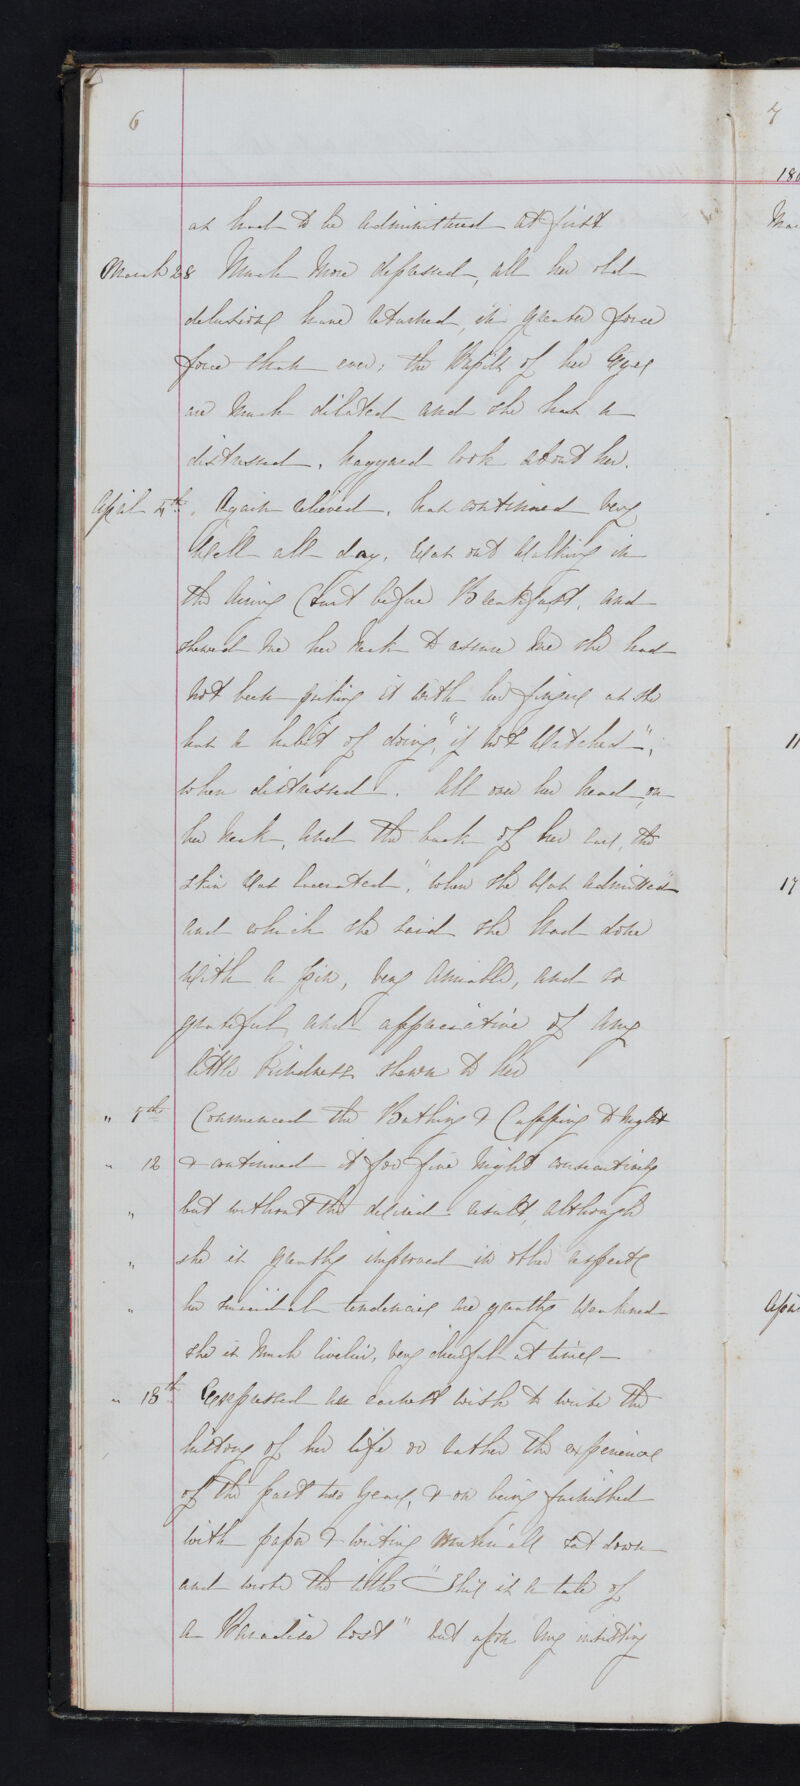 6
as had to be administered at first
March 28 Much more depressed, all her old
delusions have returned, in greater force
force than ever, the Pupils of her Eyes
are much dilated and she has a
distressed, haggard look about her.
April 4th. Again relieved, has continued very
well all day, was out walking in
the Airing Court before Breakfast, and
shewed me her neck to assure me she had
not been picking it with her fingers as she
has a habit of doing, "if not watched",
when distressed. All over her head, on
her neck, and the back of her ears, the
skin was lacerated, "when she was admitted"
and which she said she had done
with a pin, very amiable, and so
grateful and appreciative of any
little kindness shewn to her
" 7th Commenced the Bathing & Cupping to night
" 12 & continued it for five nights consecutively
" but without the desired result, although
" she is greatly improved in other respects
" her suicidal tendencies are greatly weakened
she is much livelier, very cheerful at times
" 18th Expressed an earnest wish to write the
history of her life or rather the experience
of the past two years, & on being furnished
with paper & writing materials sat down
and wrote the title "This is a tale of
a Paradise lost" but upon my insisting
7
186
Mar
11
17
Apri